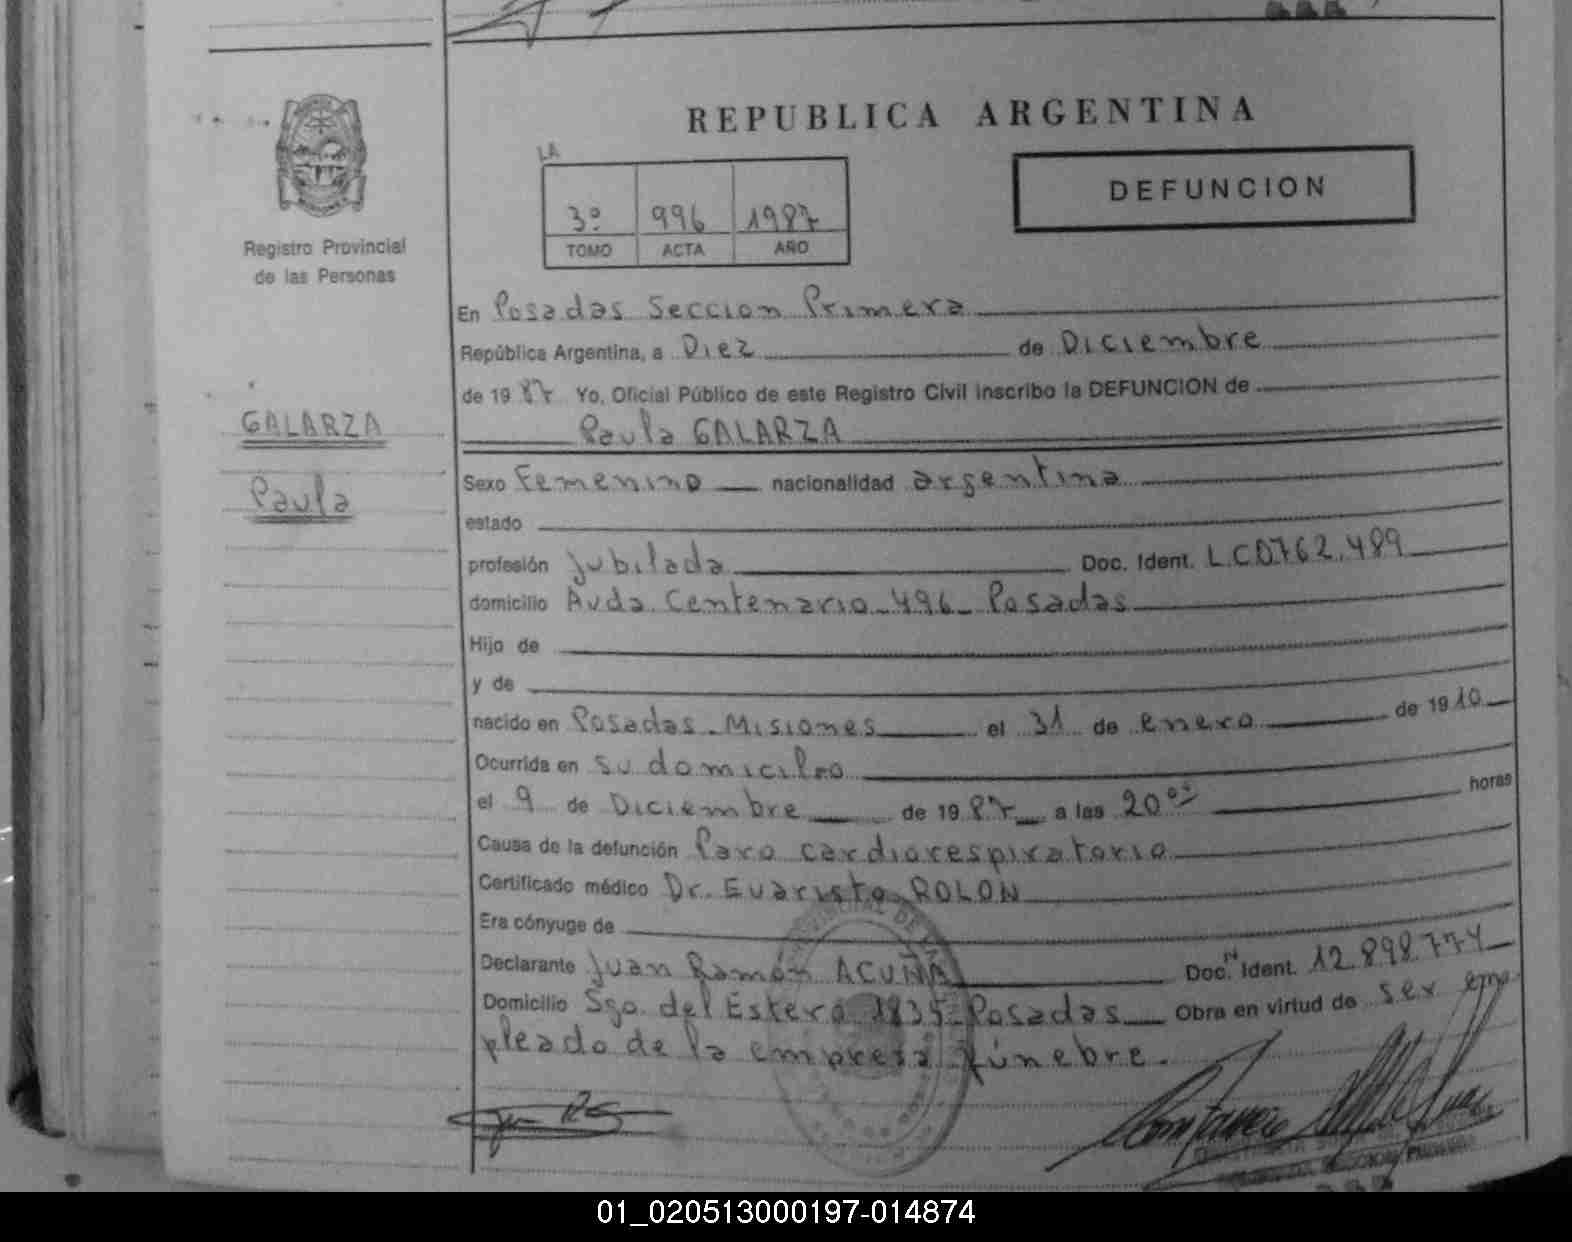 REPUBLICA ARGENTINA
LA
3º 996 1987
TOMO ACTA AÑO
DEFUNCION
Registro Provincial
de las Personas
GALARZA
Paula
En Posadas Seccion Primera
República Argentina, a Diez de Diciembre
de 1987 Yo, Oficial Público de este Registro Civil inscribo la DEFUNCION de
Paula GALARZA
Sexo Femenino nacionalidad argentina
estado
profesión Jubilada Doc. Ident. L.C.0762.489
domicilio Avda. Centenario 496 Posadas
Hijo de
y de
nacido en Posadas-Misiones el 31 de enero de 1910
Ocurrida en su domicilio
el 9 de Diciembre de 1987 a las 20 horas
Causa de la defunción Paro cardiorespiratorio
Certificado médico Dr. Evaristo ROLON
Era cónyuge de
Declarante Juan Ramón ACUÑA Doc. Ident. 12.898.774
Domicilio Sgo. del Estero 1835-Posadas Obra en virtud de ser em
pleado de la empresa fúnebre.
01_020513000197-014874